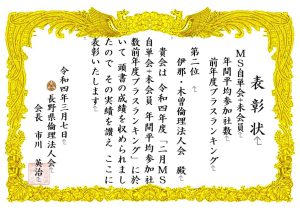 表彰状
MS自単会+未会員
年間平均参加社数
前年度プラスランキング
第二位
伊那・木曽倫理法人会 殿
貴会は 令和四年度「二月MS
自単会+未会員 年間平均参加社
数前年度プラスランキング」に於
いて 頭書の成績を収められまし
たので その実績を讃え ここに
表彰いたします
令和四年三月七日
長野県倫理法人会
会長 市川 英治